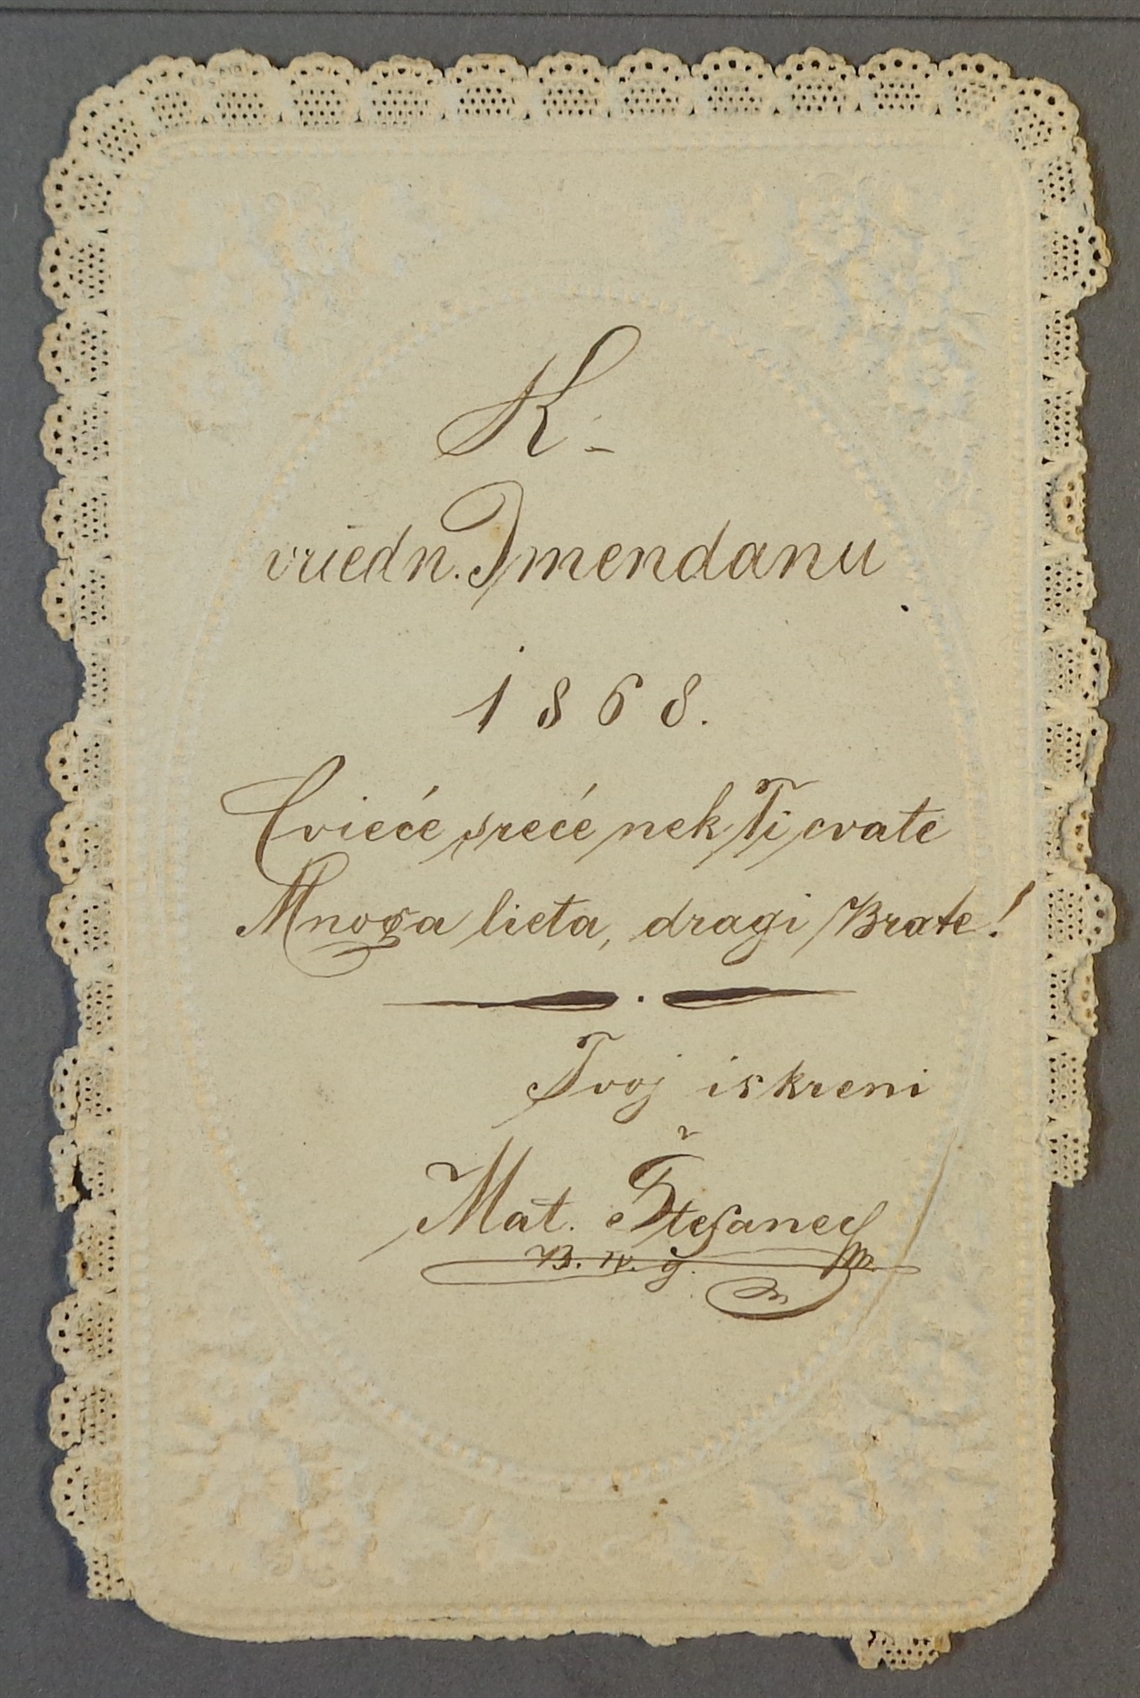 K.
vriedn. Imendanu
1868.
Cvieće sreće nek Ti cvate
Mnoga lieta, dragi Brate!
Tvoj iskreni
Mat. Štefanec